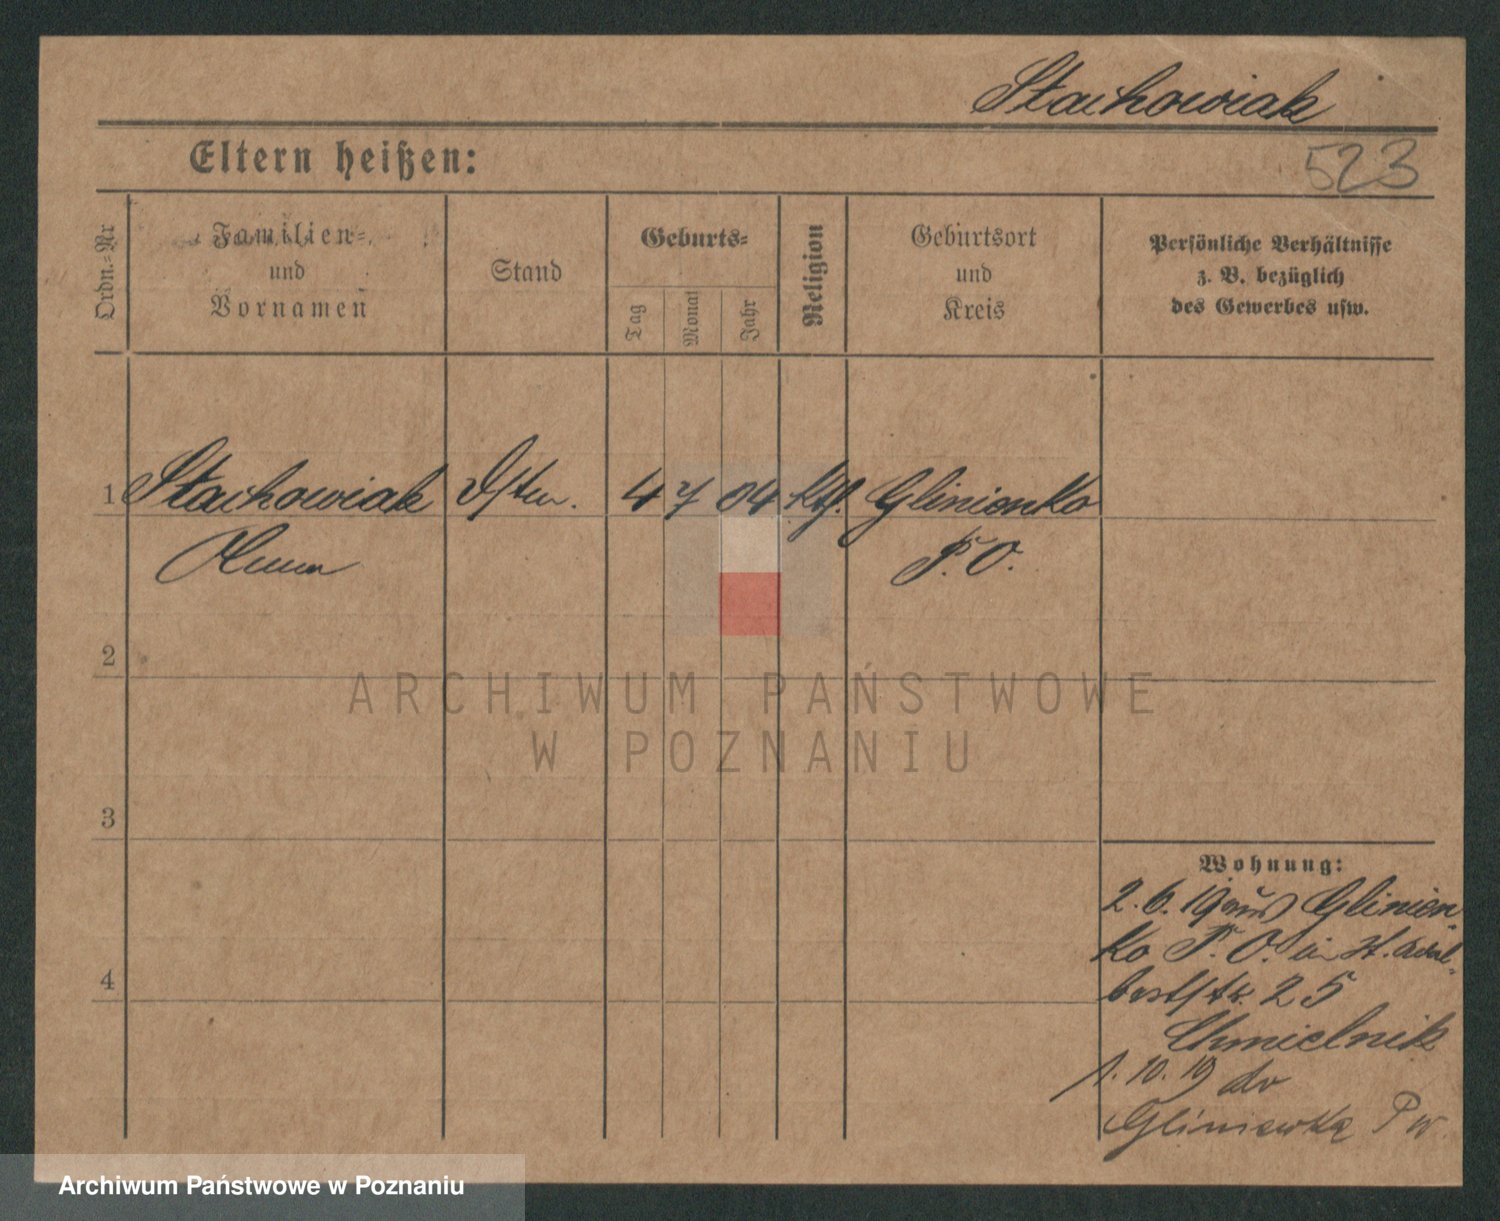 Stachowiak
523
Eltern heißen:
Ordn.=Nr
Familien=
und
Vornamen
Stand
Geburts=
Tag
Monat
Jahr
Religion
Geburtsort
und
Kreis
Persönliche Verhältnisse
z. B. bezüglich
des Gewerbes usw.
1 Stachowiak 4 7 04 kth. Glinionko
P. O.
2
3
4
Wohnung:
2. 6. 19 aus Glinien
ko P. O. in St. Adal-
bertstr. 25
Chmielnik
1. 10. 19 do
Gliniewka P W
ARCHIWUM PAŃSTWOWE
W POZNANIU
Archiwum Państwowe w Poznaniu